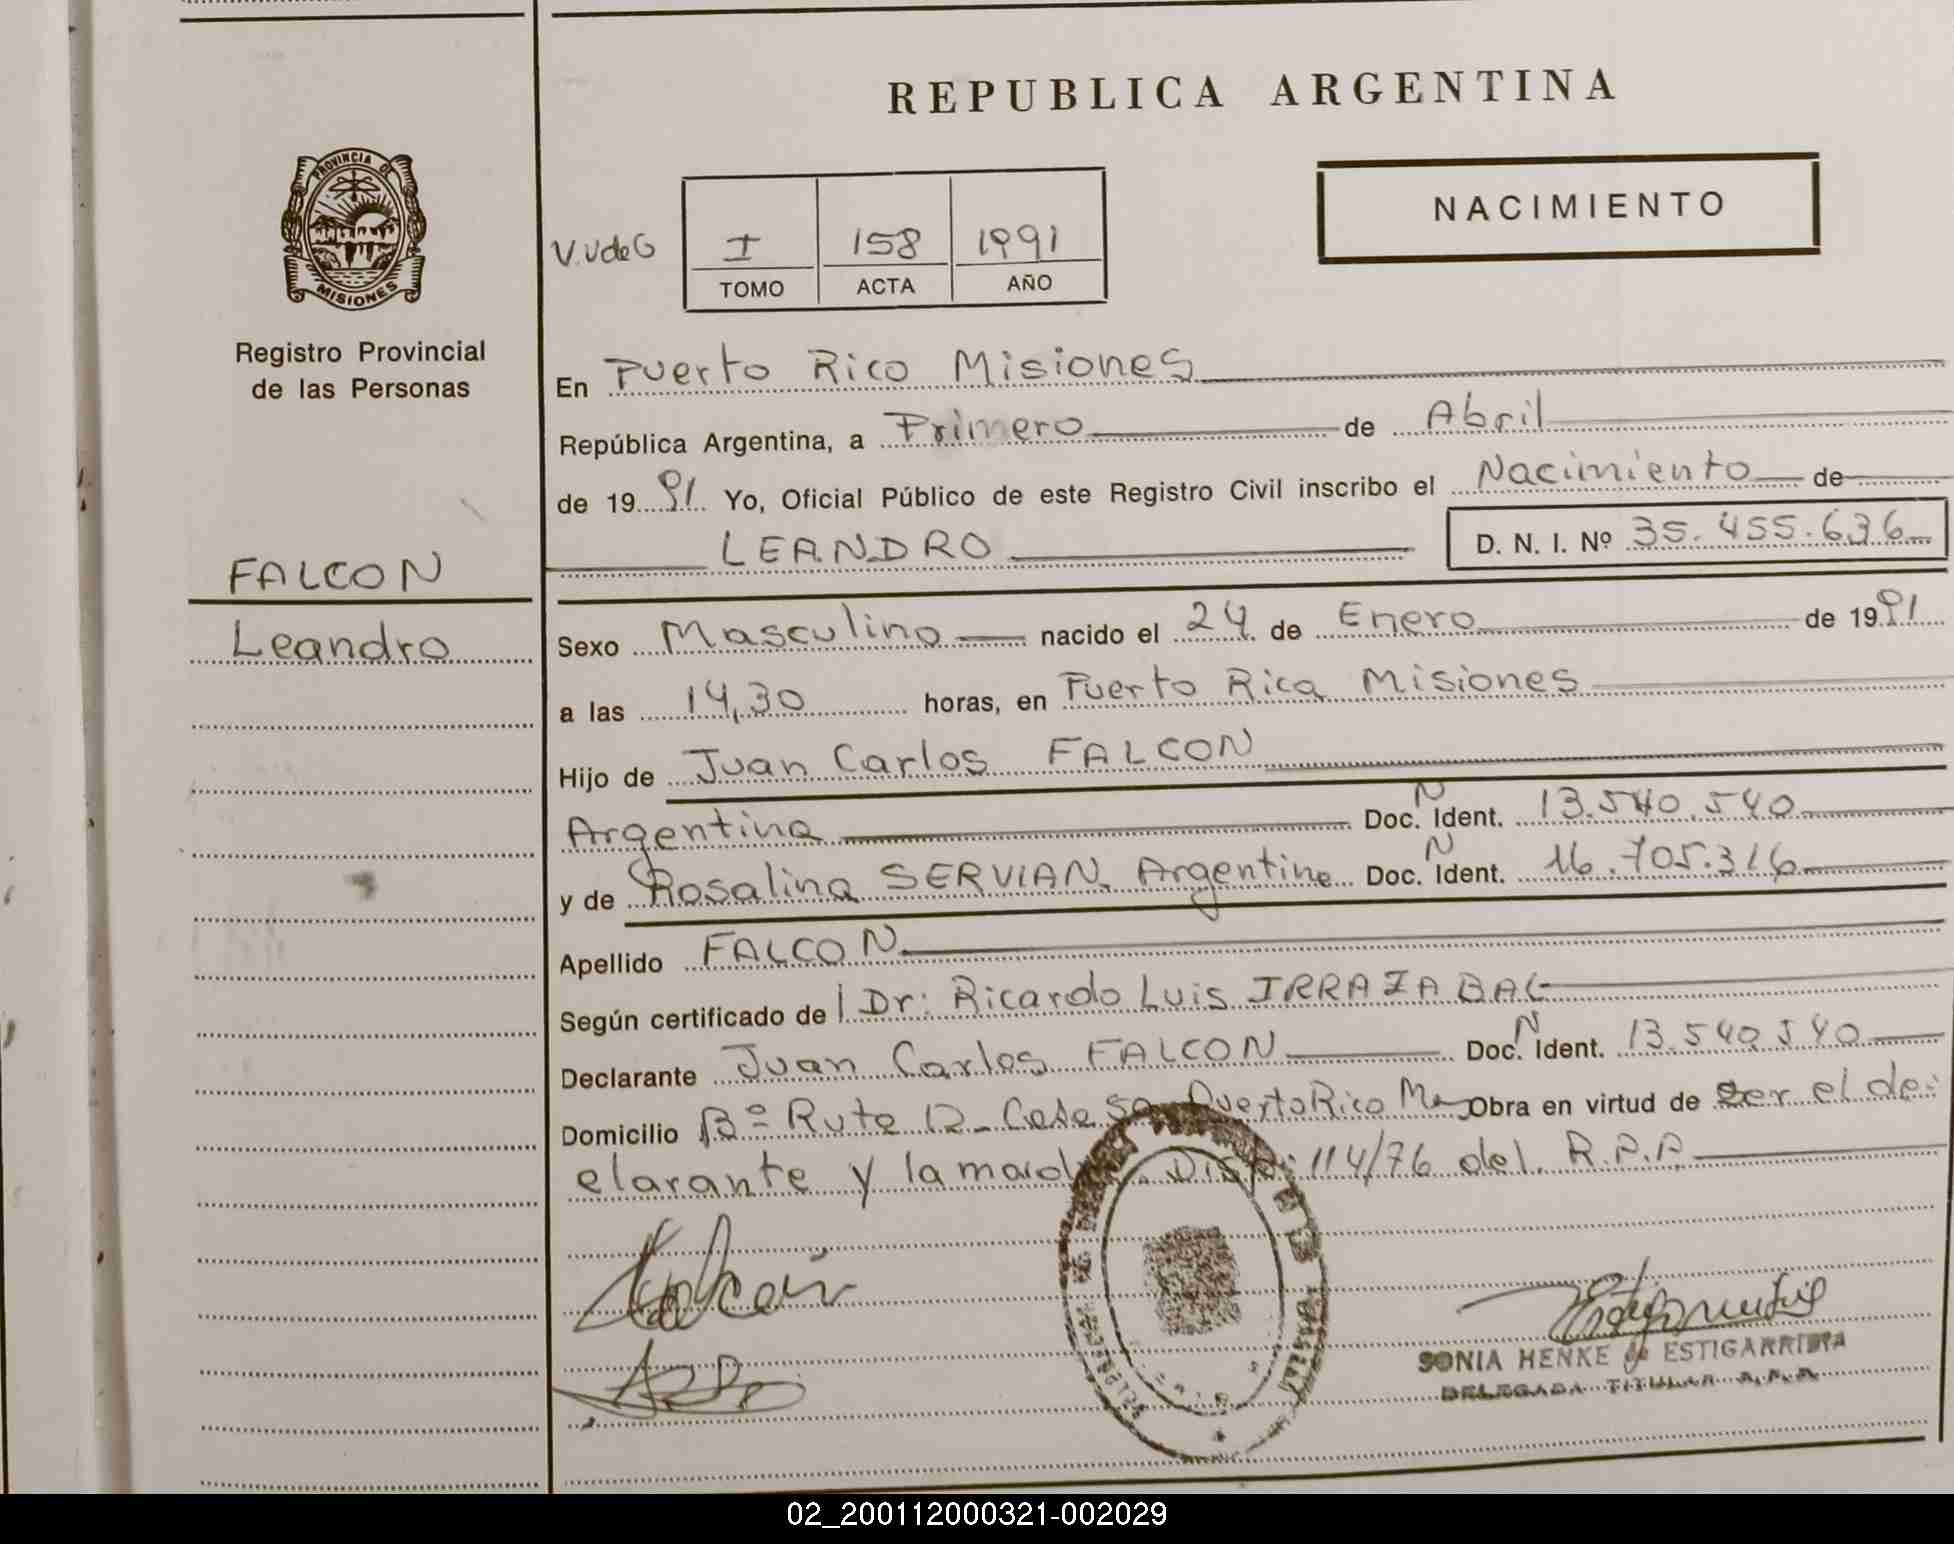 REPUBLICA ARGENTINA
PROVINCIA DE
MISIONES
Registro Provincial
de las Personas
V.V de G
I 158 1991
TOMO ACTA AÑO
NACIMIENTO
En Puerto Rico Misiones
República Argentina, a Primero de Abril
de 19 91 Yo, Oficial Público de este Registro Civil inscribo el Nacimiento de
LEANDRO D. N. I. Nº 35.455.636
FALCON
Leandro
Sexo Masculino nacido el 24 de Enero de 19 91
a las 14,30 horas, en Puerto Rico Misiones
Hijo de Juan Carlos FALCON
Argentina Doc. N Ident. 13.540.540
y de Rosalina SERVIAN. Argentina Doc. N Ident. 16.705.316
Apellido FALCON
Según certificado de l Dr: Ricardo Luis IRRAZABAL
Declarante Juan Carlos FALCON Doc. N Ident. 13.540.540
Domicilio Bº Ruta 12_ Casa Puerto Rico Obra en virtud de ser el de:
elarante y la Disp: 114/76 del. R.P.P.
SONIA HENKE de ESTIGARRIBIA
DELEGADA TITULAR
02_200112000321-002029